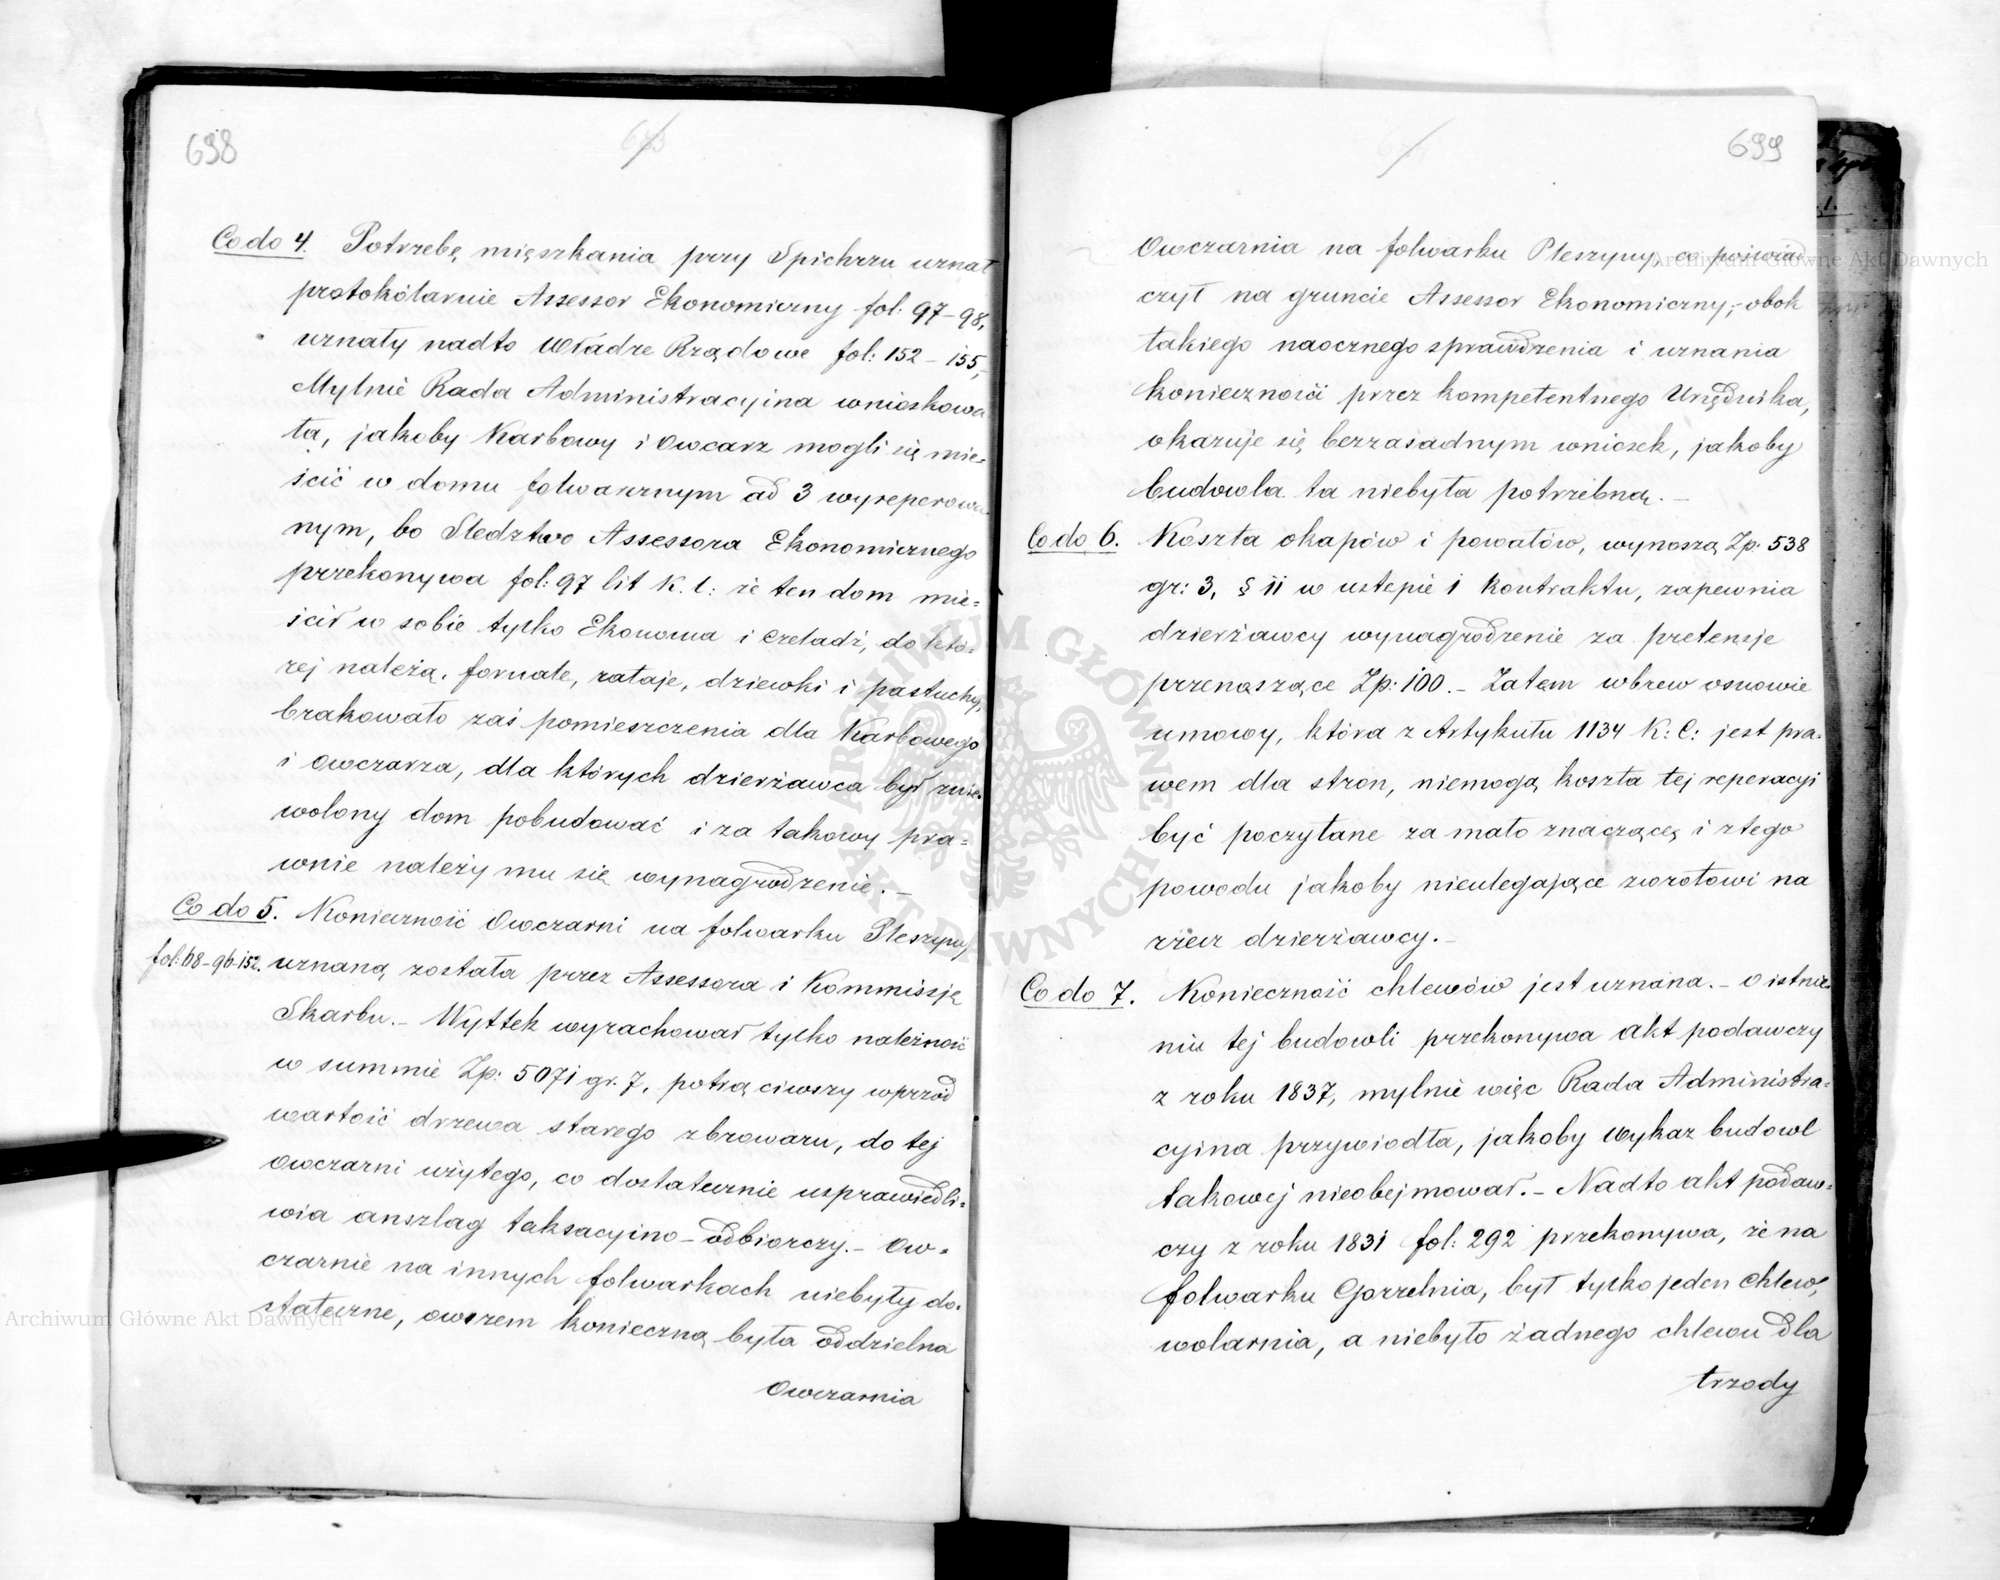 698
Co do 4. Potrzebę mięszkania przy Spichrzu uznał
protokólarnie Assessor Ekonomiczny fol: 97–98,
uznały nadto Władze Rządowe fol: 152 – 155,
Mylnie Rada Administracyina wnioskowa
ła, jakoby Karbowy i Owczarz mogli się mie=
ścić w domu folwarcznym ad 3 wyreperowa
nym, bo Śledztwo Assessora Ekonomicznego
przekonywa fol: 97 lit K. l: że ten dom mie=
ścił w sobie tylko Ekonoma i czeladź, do któ=
rej należą, fornale, rataje, dziewki i pastuchy,
brakowało zaś pomieszczenia dla Karbowego
i owczarza, dla których dzierżawca był znie=
wolony dom pobudować i za takowy pra=
wnie należy mu się wynagrodzenie. –
Co do 5. Konieczność Owczarni na folwarku Pleszyny,
fol: 68–96–152. uznaną została przez Assessora i Kommissję
Skarbu. – Wyttek wyrachował tylko należność
w summie Zp: 5071 gr. 7, potrąciwszy wprzód
wartość drzewa starego z browaru, do tej
owczarni użytego, co dostatecznie usprawiedli=
wia anszlag taksacyino–odbiorczy. – Ow=
czarnie na innych folwarkach niebyły do=
stateczne, owszem konieczną była oddzielna
Owczarnia
699
Owczarnia na folwarku Pleszyny, co poświad
czył na gruncie Assessor Ekonomiczny; – obok
takiego naocznego sprawdzenia i uznania
konieczności przez kompetentnego Urzędnika,
okazuje się bezzasadnym wniosek, jakoby
budowla ta niebyła potrzebną. –
Co do 6. Koszta okapów i powałów, wynoszą Zp: 538
gr: 3, § 11 w ustepie 1 Kontraktu, zapewnia
dzierżawcy wynagrodzenie za pretensje
przenąszące Zp: 100. – Zatem wbrew osnowie
umowy, która z Artykułu 1134 K: C: jest pra=
wem dla stron, niemogą koszta tej reperacyi
być poczytane za mało znaczącę i z tego
powodu jakoby nieulegające zwrotowi na
rzecz dzierżawcy. –
Co do 7. Konieczność chlewów jest uznana. – O istnie=
niu tej budowli przekonywa akt podawczy
z roku 1837, mylnie więc Rada Administra=
cyina przywiodła, jakoby wykaz budowl
takowej nieobejmował. – Nadto akt podaw=
czy z roku 1831 fol: 292 przekonywa, że na
folwarku Gorzelnia, był tylko jeden chlew,
wolarnia, a niebyło żadnego chlewu dla
trzody
ARCHIWUM GŁÓWNE AKT DAWNYCH
Archiwum Główne Akt Dawnych
Archiwum Główne Akt Dawnych